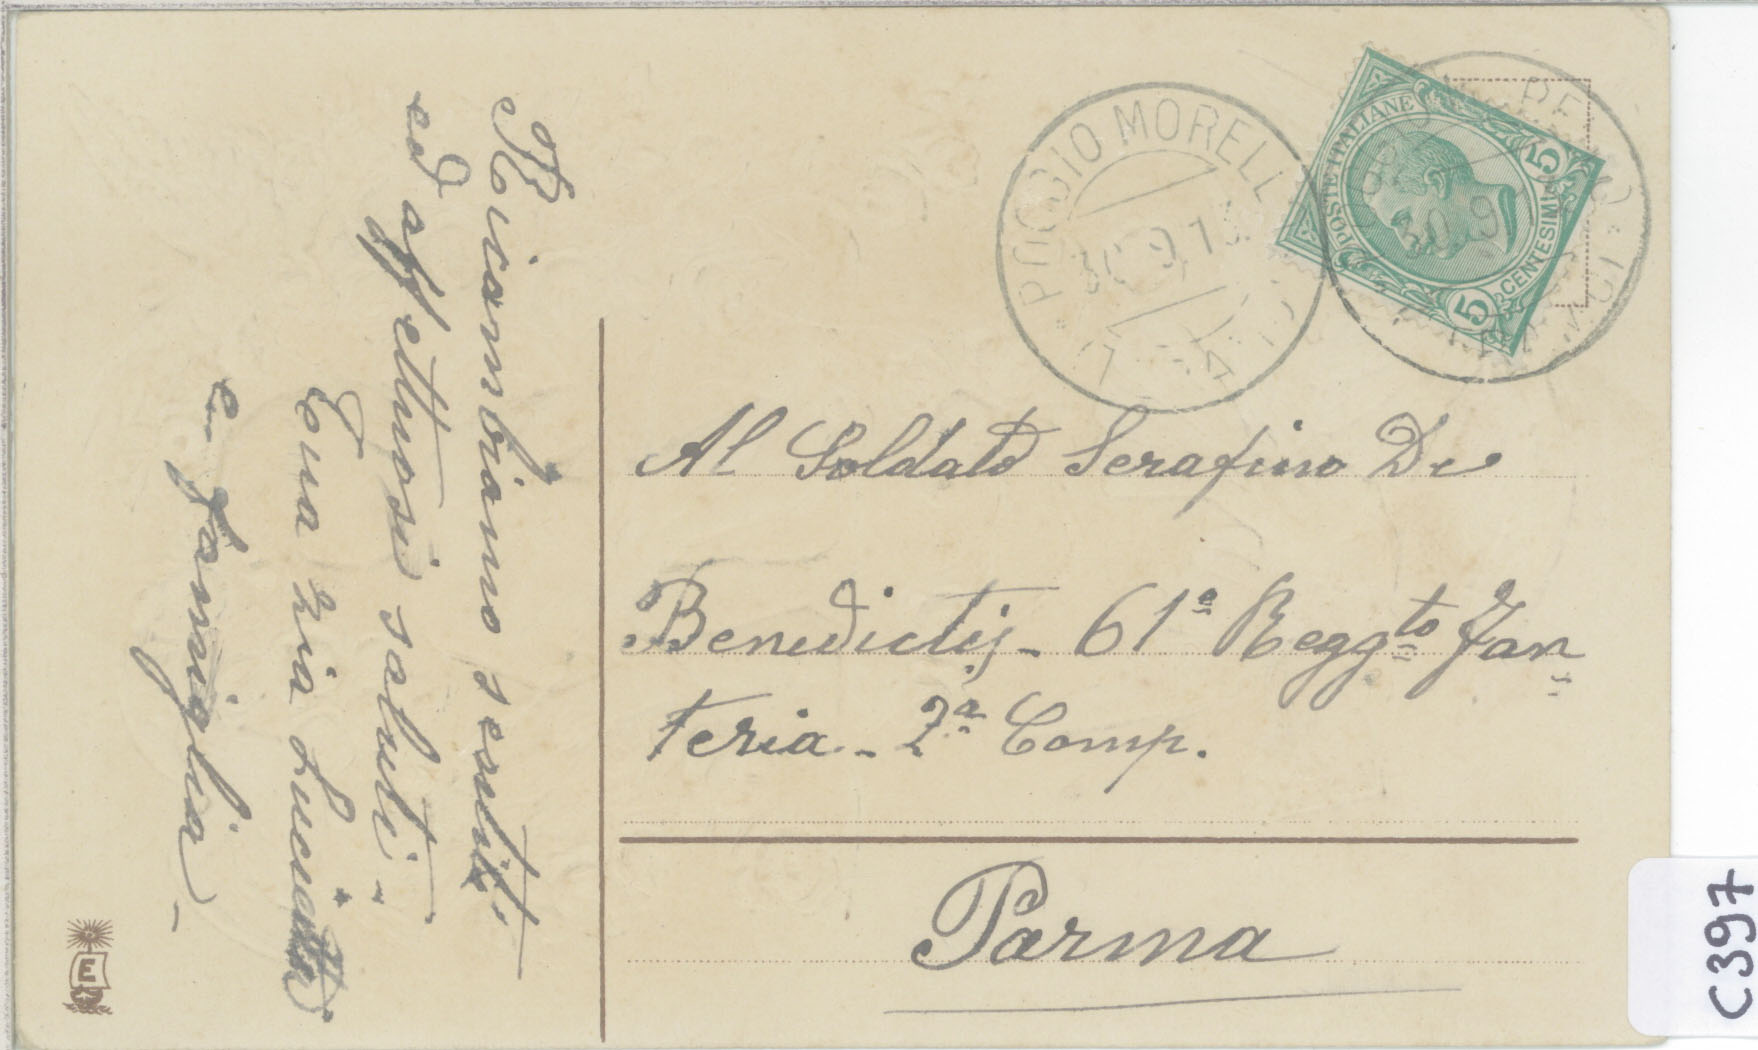 Ricambiamo sentiti
ed affettuosi saluti -
Tua zia Lucietta
e famiglia -
POGGIO MORELLO
30.9.13
POSTE ITALIANE
5
5
CENTESIMI
30.9
Al Soldato Serafino De
Benedictis - 61ª Reggto Fan
teria - 2ª Comp.
Parma
E
C397